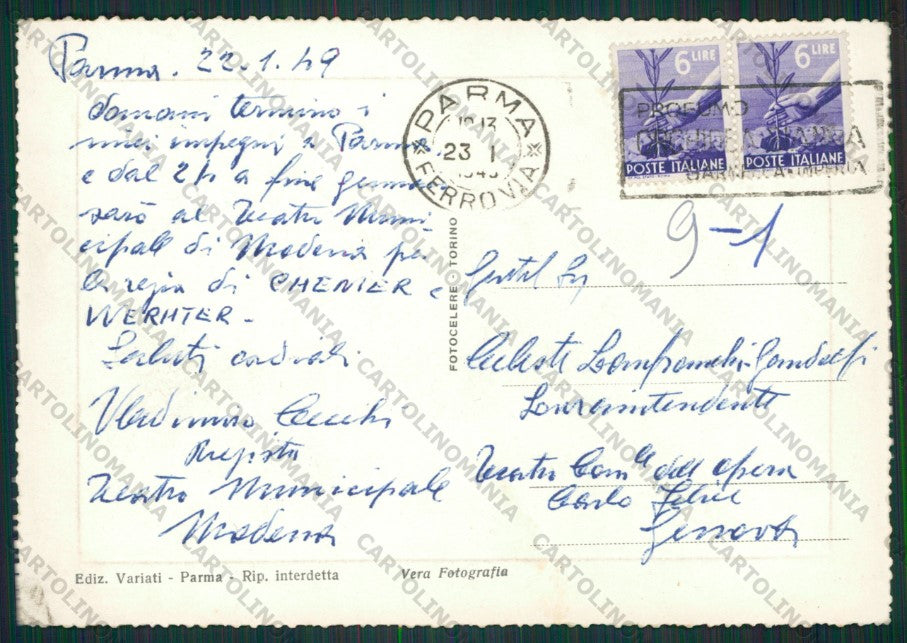 Parma. 22.1.49
domani termino i
miei impegni a Parma
e dal 24 a fine gennaio
sarò al Teatro Muni-
cipale di Modena per
la regia di CHENIER e
WERHTER -
Saluti cordiali
Vladimiro Cecchi
Regista
Teatro Municipale
Modena
PARMA
FERROVIA
10.13
23 1
1949
6 LIRE
POSTE ITALIANE
6 LIRE
POSTE ITALIANE
PROFUMO
9-1
FOTOCELERE TORINO
Gentil Sig
Celeste Lanfranchi-Gandolfi
Sovraintendente
Teatro Com.le dell'opera
Carlo Felice
Genova
Ediz. Variati - Parma - Rip. interdetta
Vera Fotografia
CARTOLINOMANIA